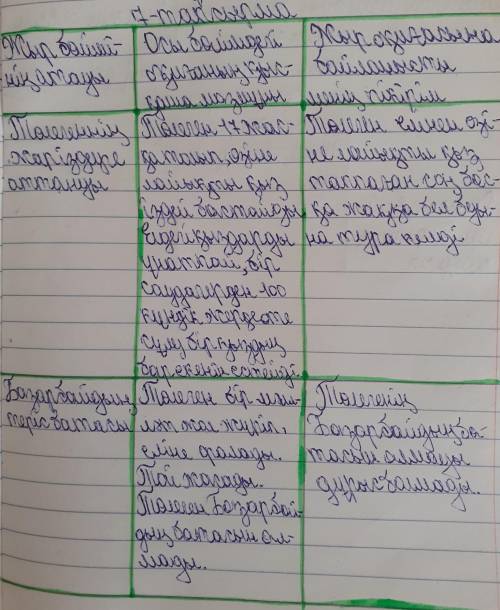 7-тапсырма
Жыр бөлімі-
нің атауы
Осы бөлімдегі
оқиғаның қыс-
қаша мазмұны
Жыр оқиғасына
байланысты
менің пікірім
Төлегеннің
жар іздеуге
аттануы
Төлеген 17 жас-
қа толып, өзіне
лайықты қыз
іздей бастайды
Елдегі қыздарды
ұнатпай, бір
саудагерден 100
күндік жерде өте
сұлу бір қыздың
бар екенін естейді.
Төлеген елінен өзі-
не лайықты қыз
таппаған соң бас-
қа жаққа бел буы-
на тура келеді
Базарбайдың
теріс батасы
Төлеген бір
жыл жүріп,
еліне оралады.
Той жасады.
Төлеген Базарбай-
дың батасын ал-
мады.
Төлегенің
Базарбайдың ба-
тасын алмауы
дұрыс болмады.